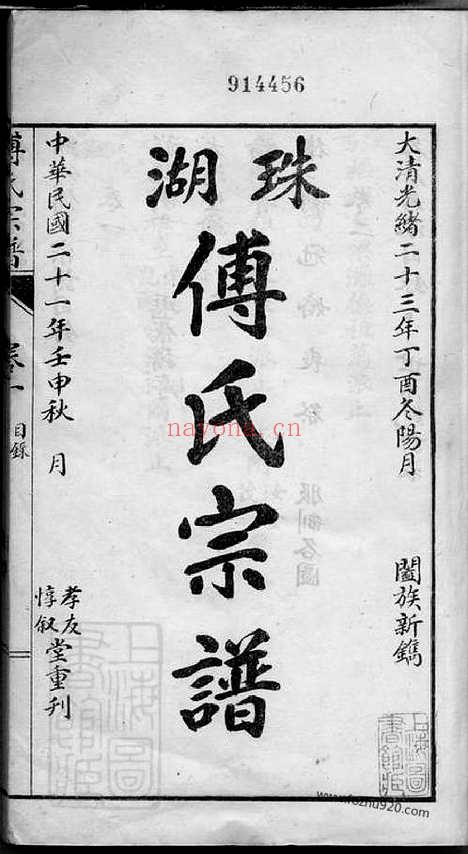 914456
大清光緒二十三年丁酉冬陽月
闔族新鐫
珠湖
傅氏宗譜
中華民國二十一年壬申秋 月
孝友
惇叙
堂重刊
傅氏宗譜
卷一
目錄
上海圖書館藏
上海圖書館藏
nayona.cn
www.fozhu920.com